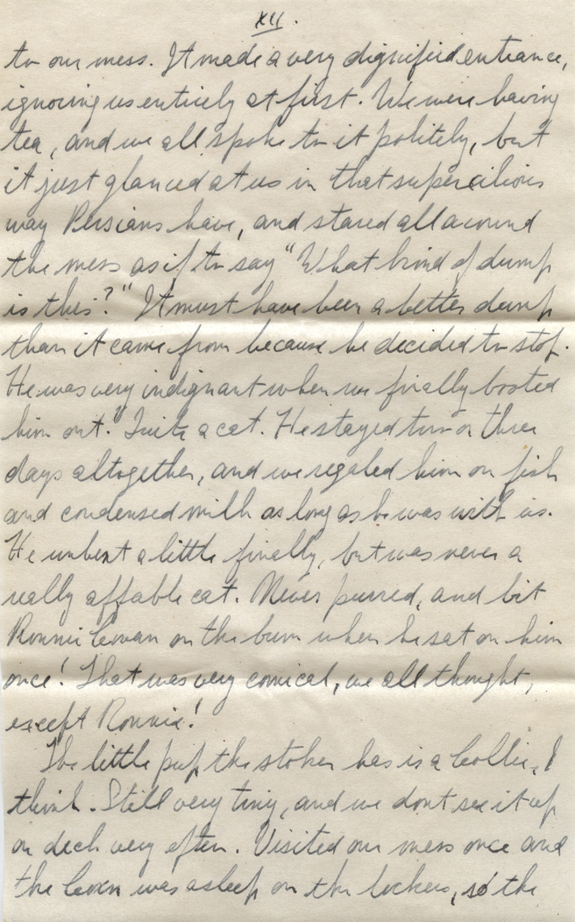 XII.
to our mess. It made a very dignified entrance,
ignoring us entirely at first. We were having
tea, and we all spoke to it politely, but
it just glanced at us in that supercilious
way Persians have, and stared all around
the mess as if to say "What kind of dump
is this?" It must have been a better dump
than it came from because he decided to stop.
He was very indignant when we finally booted
him out. Quite a cat. He stayed two or three
days altogether, and we regaled him on fish
and condensed milk as long as he was with us.
He unbent a little finally, but was never a
really affable cat. Never purred, and bit
Ronnie Cowan on the bum when he sat on him
once! That was very comical, we all thought,
except Ronnie!
The little pup the stoker has is a Collie, I
think. Still very tiny, and we dont see it up
on deck very often. Visited our mess once and
the was asleep on the lockers, so the